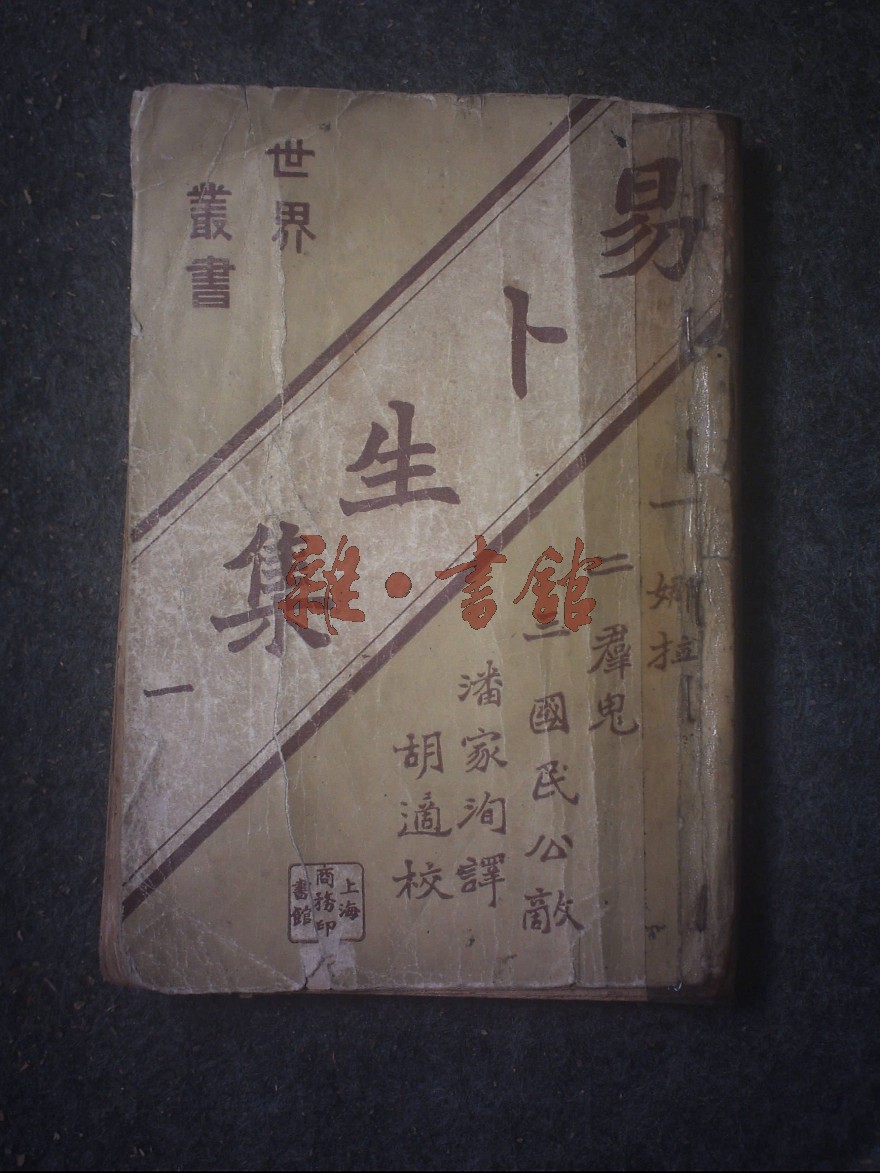 易卜生集
一
世界
叢書
一 娜拉
二 羣鬼
三 國民公敵
潘家洵譯
胡適校
上海
商務印
書館
雜·書館